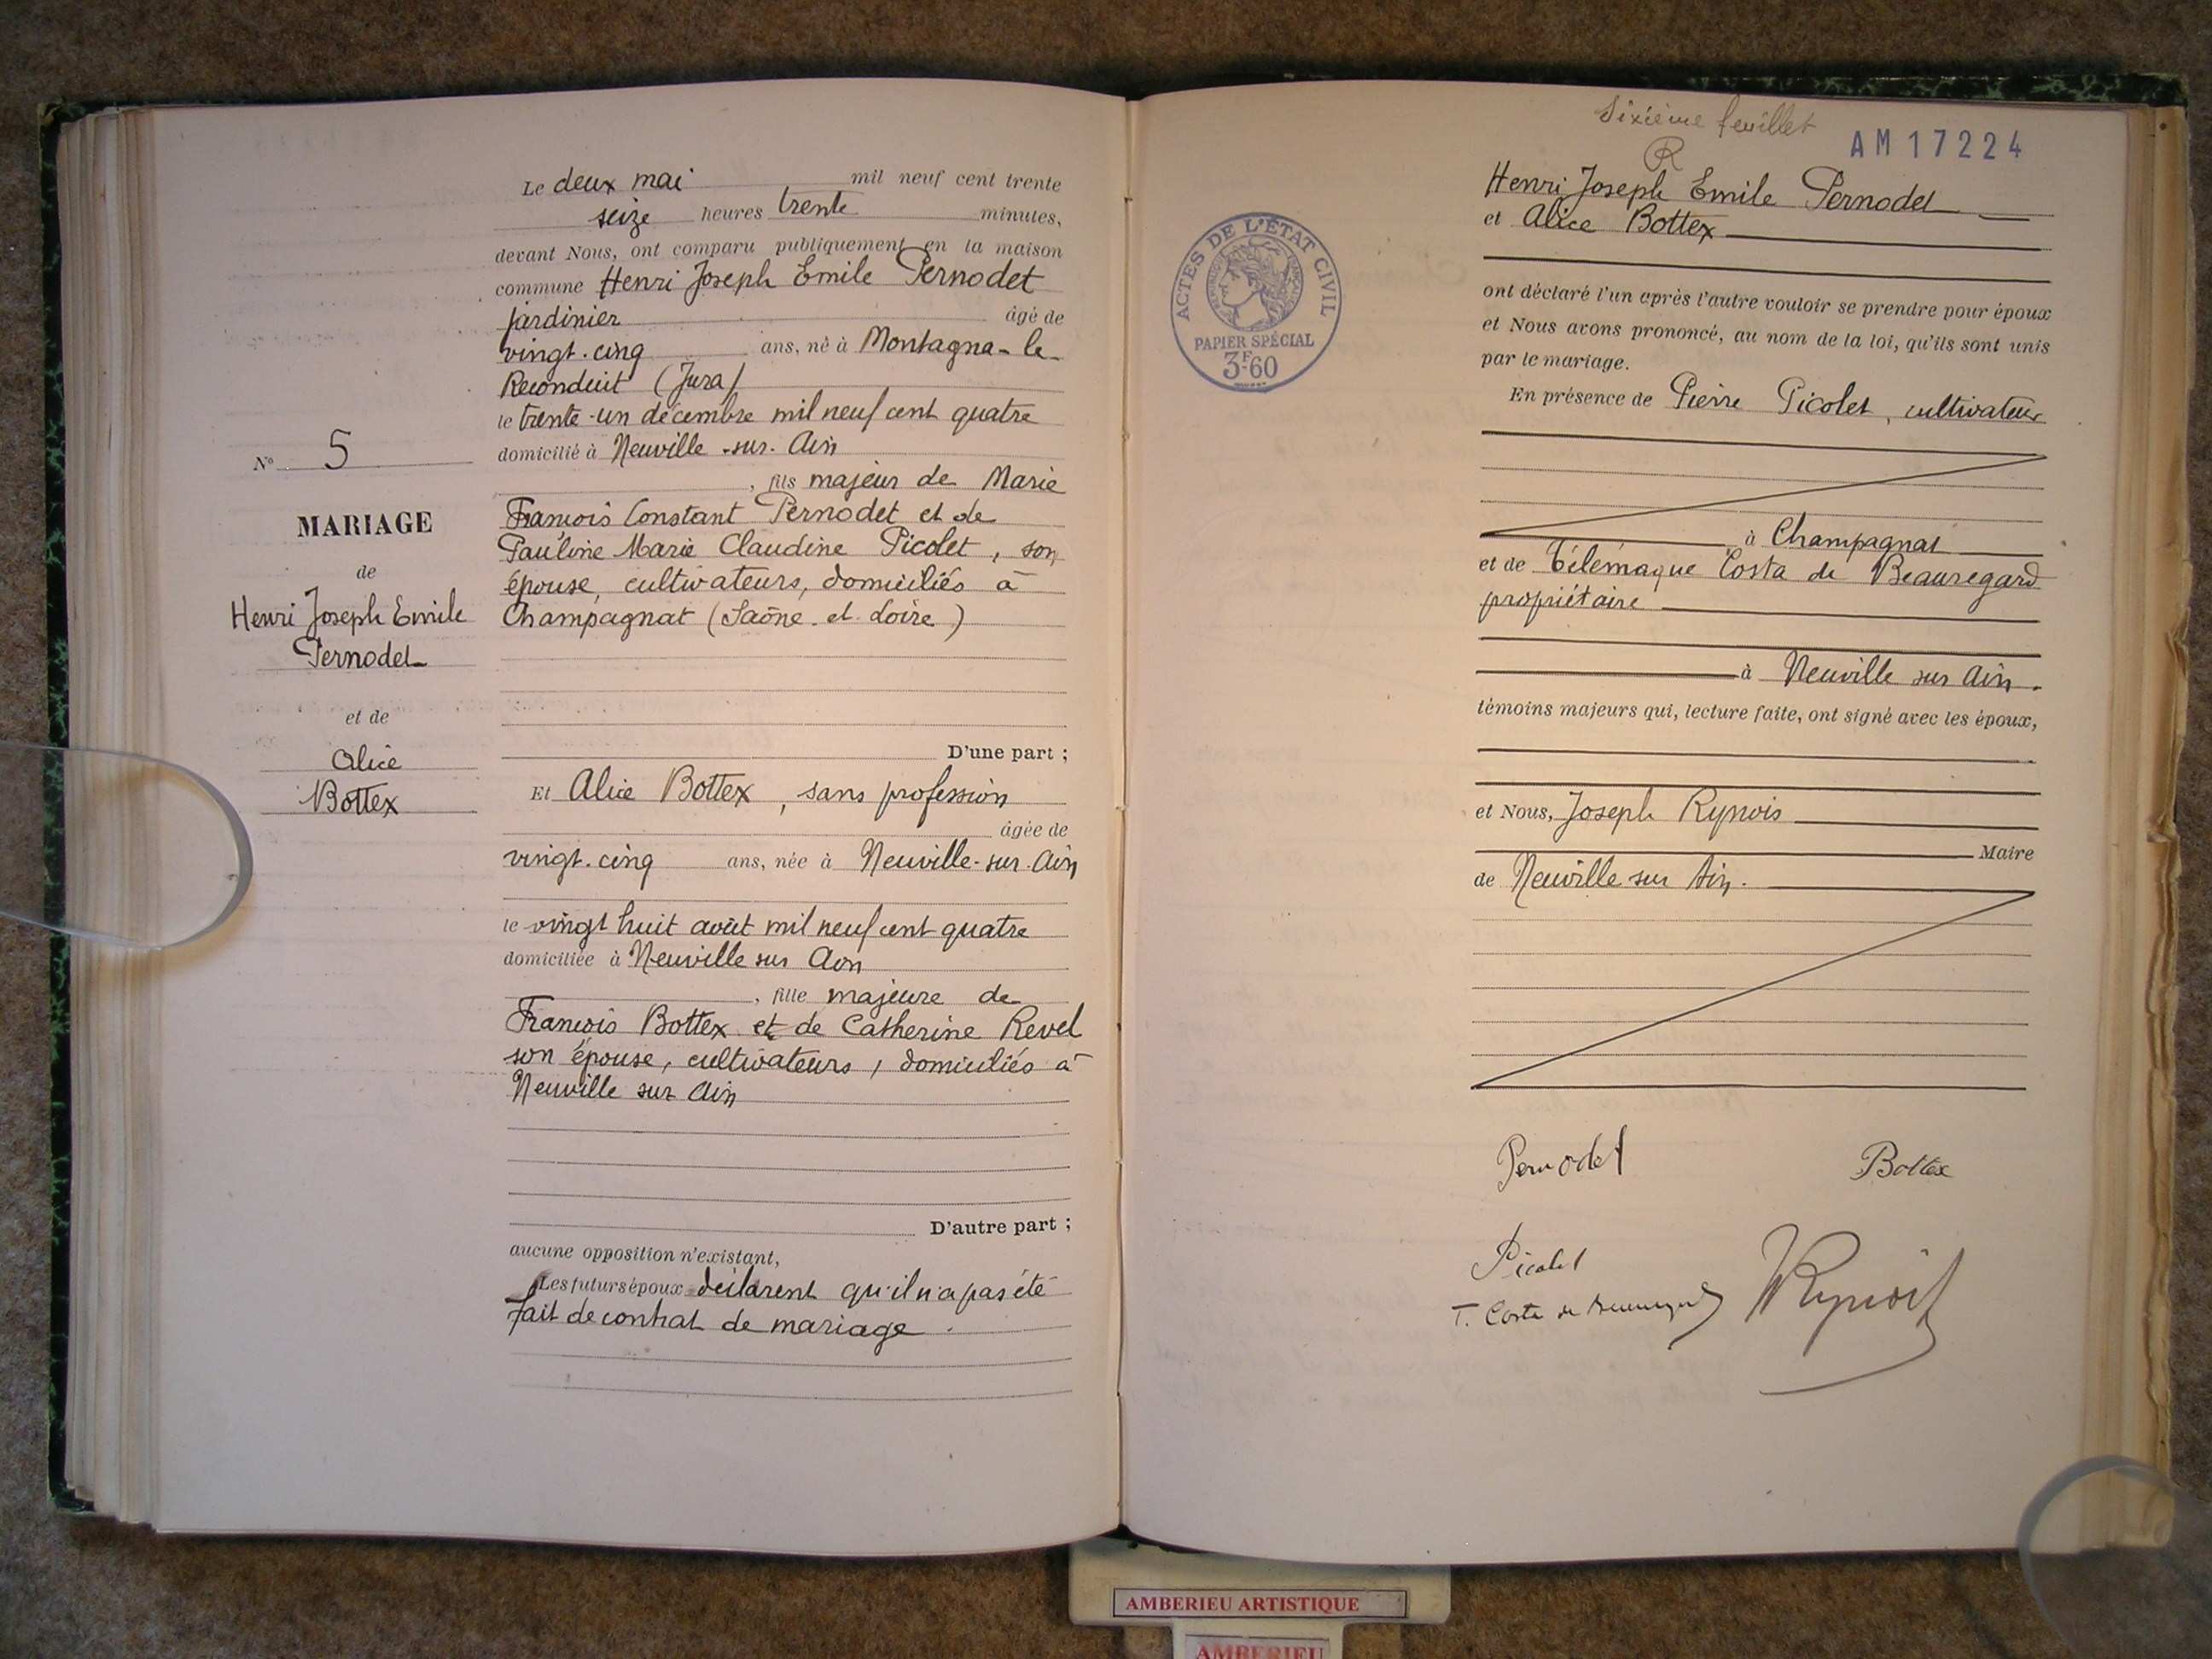 Le deux mai mil neuf cent trente
seize heures trente minutes,
devant Nous, ont comparu publiquement en la maison
commune Henri Joseph Emile Pernodet
jardinier âgé de
vingt-cinq ans, né à Montagna-le-
Reconduit (Jura)
le trente-un décembre mil neuf cent quatre
domicilié à Neuville-sur-Ain
, fils majeur de Marie
François Constant Pernodet et de
Pauline Marie Claudine Picolet, son
épouse, cultivateurs, domiciliés à
Champagnat (Saône-et-Loire)
D'une part ;
Et Alice Bottex, sans profession
âgée de
vingt-cinq ans, née à Neuville-sur-Ain
le vingt huit août mil neuf cent quatre
domiciliée à Neuville sur Ain
, fille majeure de
François Bottex et de Catherine Revel
son épouse, cultivateurs, domiciliés à
Neuville sur Ain
D'autre part ;
aucune opposition n'existant,
Les futurs époux déclarent qu'il n'a pas été
fait de contrat de mariage.
N° 5
MARIAGE
de
Henri Joseph Emile
Pernodet
et de
Alice
Bottex
Sixième feuillet
R
AM17224
ACTES DE L'ÉTAT CIVIL
RÉPUBLIQUE FRANÇAISE
PAPIER SPÉCIAL
3F60
Henri Joseph Emile Pernodet
et Alice Bottex
ont déclaré l'un après l'autre vouloir se prendre pour époux
et Nous avons prononcé, au nom de la loi, qu'ils sont unis
par le mariage.
En présence de Pierre Picolet, cultivateur
à Champagnat
et de Télémaque Costa de Beauregard
propriétaire
à Neuville sur Ain.
témoins majeurs qui, lecture faite, ont signé avec les époux,
et Nous, Joseph Rynois
Maire
de Neuville sur Ain.
Pernodet Bottex
Picolet
T. Costa de Beauregard JRynois
AMBERIEU ARTISTIQUE
AMBERIEU